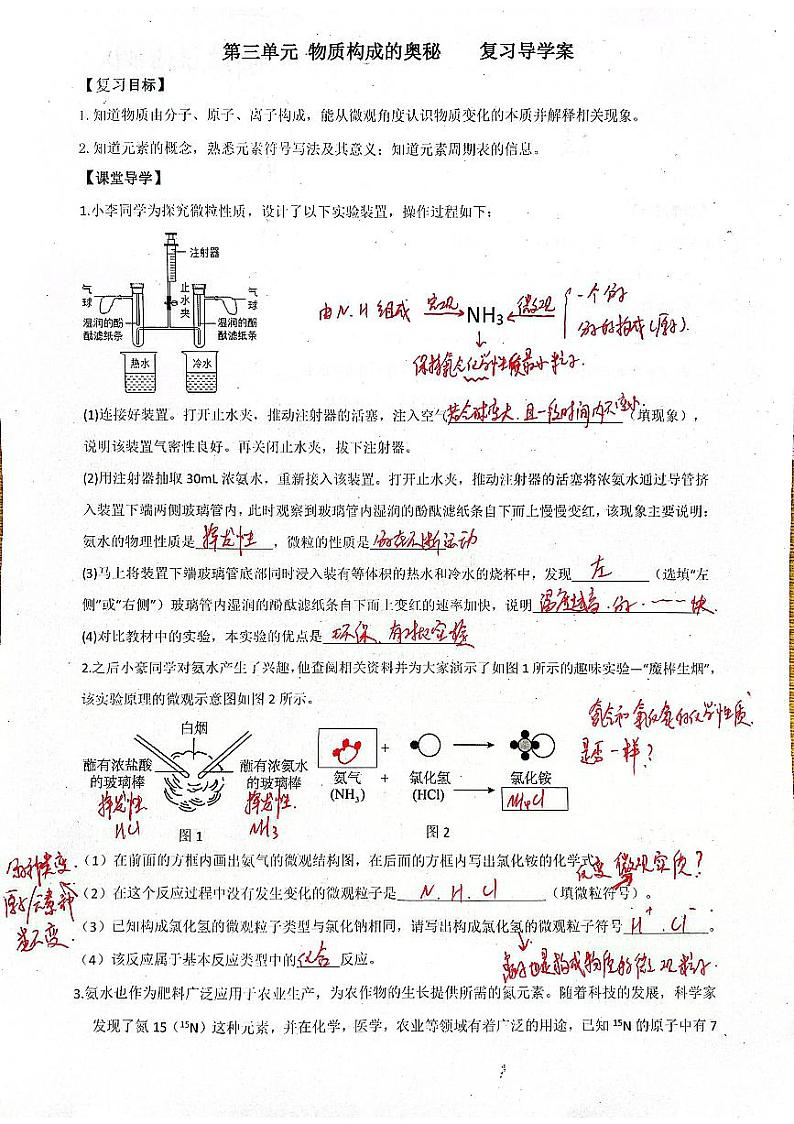 第三单元 物质构成的奥秘 复习导学案
【复习目标】
1. 知道物质由分子、原子、离子构成，能从微观角度认识物质变化的本质并解释相关现象。
2. 知道元素的概念，熟悉元素符号写法及其意义；知道元素周期表的信息。
【课堂导学】
1.小李同学为探究微粒性质，设计了以下实验装置，操作过程如下：
注射器
气球
止水夹
气球
湿润的酚酞滤纸条
湿润的酚酞滤纸条
热水
冷水
由N、H组成 宏观 NH₃ 微观 一个分子
分子的构成(原子).
保持氨气化学性质最小粒子.
(1)连接好装置。打开止水夹，推动注射器的活塞，注入空气 若气球变大，且一段时间内不变小（填现象），
说明该装置气密性良好。再关闭止水夹，拔下注射器。
(2)用注射器抽取 30mL 浓氨水，重新接入该装置。打开止水夹，推动注射器的活塞将浓氨水通过导管挤
入装置下端两侧玻璃管内，此时观察到玻璃管内湿润的酚酞滤纸条自下而上慢慢变红，该现象主要说明：
氨水的物理性质是 挥发性 ，微粒的性质是 分子在不断运动
(3)马上将装置下端玻璃管底部同时浸入装有等体积的热水和冷水的烧杯中，发现 左 （选填“左
侧”或“右侧”）玻璃管内湿润的酚酞滤纸条自下而上变红的速率加快，说明 温度越高，分子……快
(4)对比教材中的实验，本实验的优点是 环保，有对比实验
2.之后小豪同学对氨水产生了兴趣，他查阅相关资料并为大家演示了如图 1 所示的趣味实验—“魔棒生烟”，
该实验原理的微观示意图如图 2 所示。
氨气和氯化氢的化学性质
是否一样？
白烟
蘸有浓盐酸的玻璃棒
挥发性
HCl
蘸有浓氨水的玻璃棒
挥发性.
NH₃
图 1
+
氨气 + 氯化氢 氯化铵
(NH₃) (HCl) NH₄Cl
图 2
分子种类变
原子/元素种
类不变.
（1）在前面的方框内画出氨气的微观结构图，在后面的方框内写出氯化铵的化学式
化变 微观实质？
（2）在这个反应过程中没有发生变化的微观粒子是 N、H、Cl （填微粒符号）。
（3）已知构成氯化氢的微观粒子类型与氯化钠相同，请写出构成氯化氢的微观粒子符号 H⁺、Cl⁻ 。
（4）该反应属于基本反应类型中的 化合 反应。
离子也是构成物质的微观粒子.
3.氨水也作为肥料广泛应用于农业生产，为农作物的生长提供所需的氮元素。随着科技的发展，科学家
发现了氮 15（¹⁵N）这种元素，并在化学，医学，农业等领域有着广泛的用途，已知 ¹⁵N 的原子中有 7